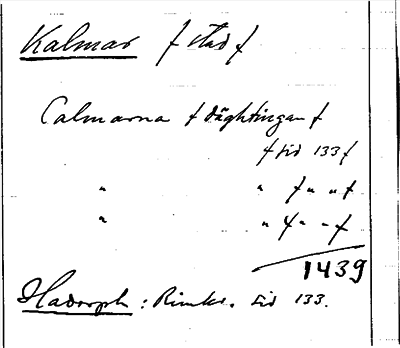 Kalmar f stad f
Calmarna f däghtingan f
f sid 133 f
" " f " " f
" " f " " f
1439
Hadorph: Rimkr. sid 133.